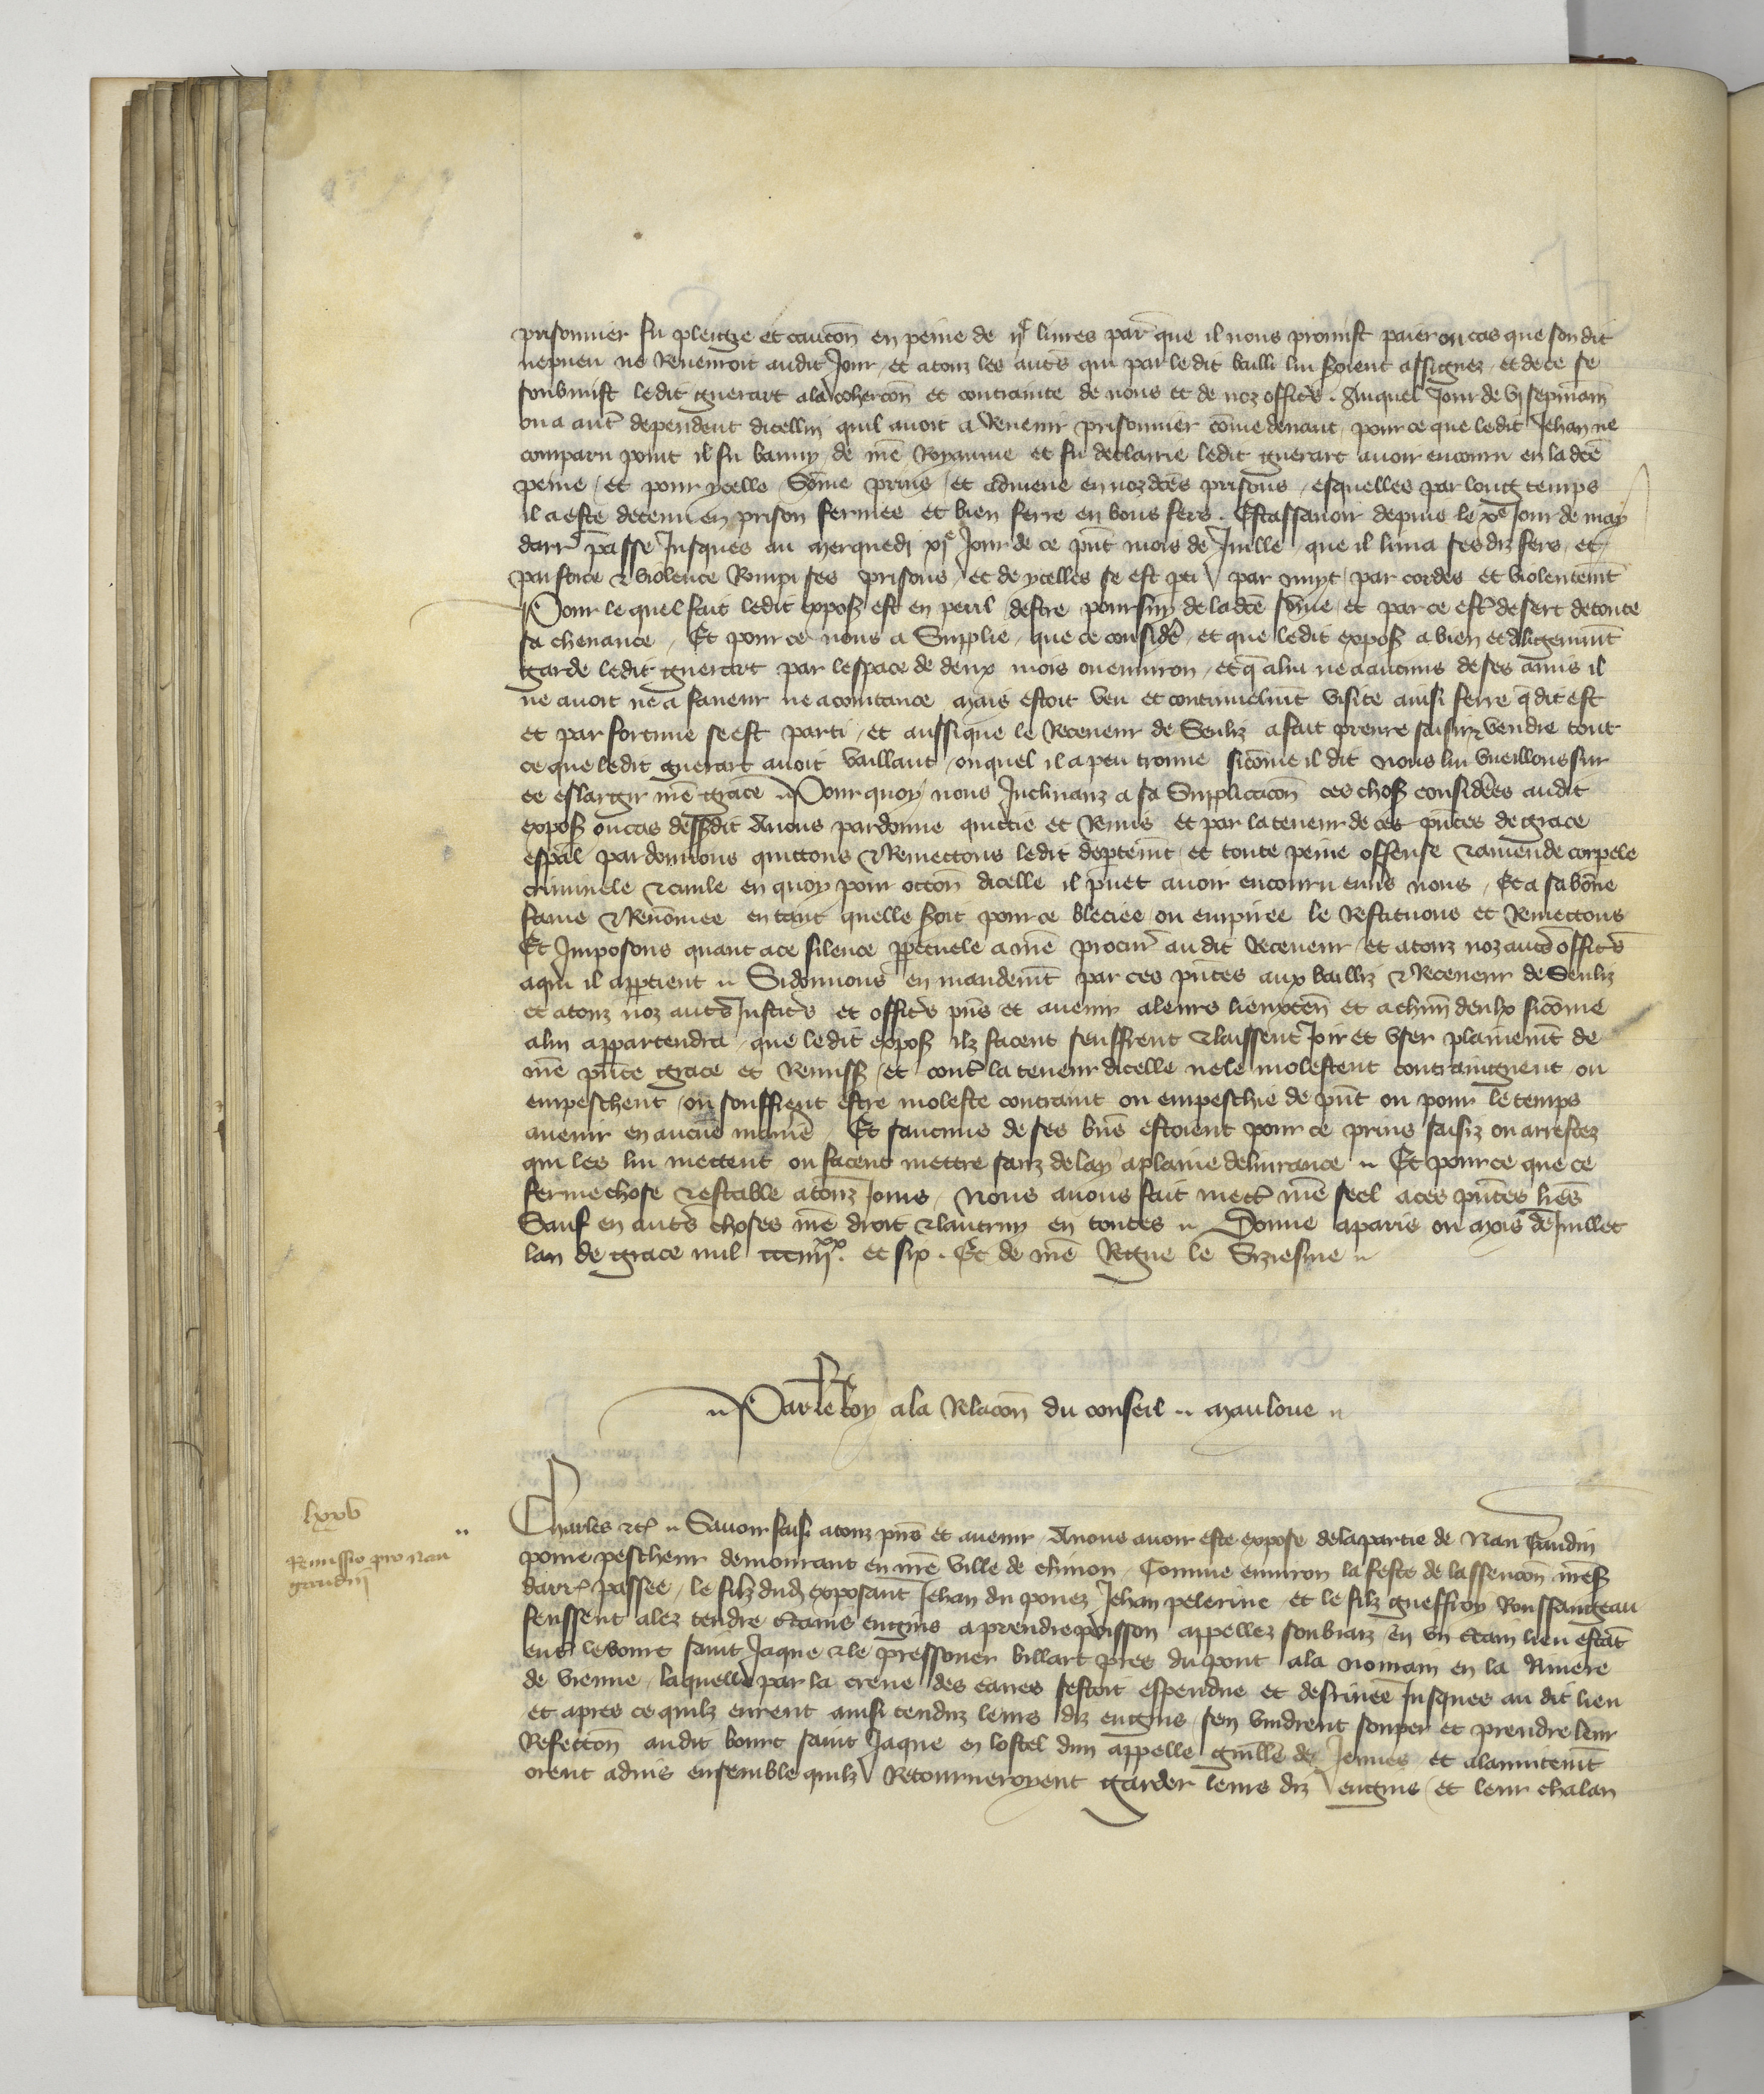 prisonnier fu pleige et caucōn en peine de ijᶜ liures par que il nous promist paier ou cas que son dit
nepueu ne Reuenroit au dit Jour et a touz les autēs qui par le dit bailli lui seroient assignez et de ce se
soubmist le dit guerart a la cohercōn et contrainte de nous et de noz officēs. Auquel Jour de vj sepmain
ou a autē dependent dicellui quil auoit a Reuenir prisonnier cōme deuant pour ce que ledit Jehan ne
comparu point il fu banny de n̄re Royaume et fu declairie ledit guerart auoir encouru en la dc̄e
peine et pour ycelle Sōme prins et admene en noz dc̄es prisons esquelles par long temps
il a este detenu en prison fermee et bien ferre en bons fers. Cestassauoir depuis le xᵉ Jour de may
darrē passe Jusques au merquedi xjᵉ Jour de ce pn̄t mois de Juillē que il lima ses diz fers et
par force & violence Rompi ses prisons et de ycelles se est pti par nuyt par cordes et violentemt̄
Pour le quel fait ledit expos̄ est en peril destre poursuy de la dc̄e sōme et par ce estē desert de toute
sa cheuance Et pour ce nous a Supplie que ce considēe et que ledit expos̄ a bien et diligemmt̄
garde ledit guerart par lespace de deux mois ou enuiron et q̄ a lui ne a aucuns de ses amis il
ne auoit ne a faueur ne acointance mais estoit veu et continuelmt̄ visite ainsi ferre q̄ dit est
et par fortune se est parti et aussi que le Receueur de Senliz a fait prenre saisir & vendre tout
ce que ledit guerart auoit vaillant ou quel il a peu trouue sicōme il dit nous lui vueillons sur
ce eslargir n̄re grace Pour quoy nous Inclinanz a sa Supplicacōn ces chos̄ considēes au dit
expos̄ ou cas dessusdit Auons pardonne quittie et Remis et par la teneur de ces pn̄tes de grace
esp̄al pardonnons quittons & Remettons ledit departemt̄ et toute peine offense & amende corporele
criminele & ciuile en quoy pour occōn dicelle il puet auoir encouru enūs nous Et a sa bōne
fame & Renōmee en tant quelle soit pour ce bleciee ou empiree le Restituons et Remettons
Et Imposons quant a ce silence ppetuele a n̄re procur̄ au dit Receueur et a touz noz autēs officēs
a qui il appartient Si donnons en mandemt̄ par ces pn̄tes aux bailliz & Receueur de Senliz
et a touz noz autēs Justicēs et officēs pn̄s et auenir a leurs lieuxten̄ et a chun̄ deulx sicōme
a lui appartendra que le dit expos̄ ilz facent seuffrent & laissent Joir et vser plainemt̄ de
n̄re pn̄te grace et Remiss̄ et contē la teneur dicelle ne le molestent contraingnent ou
empeschent ou souffrent estre moleste contraint ou empeschie de pn̄t ou pour le temps
auenir en aucūe manierē Et saucuns de ses biēs estoient pour ce prins saisiz ou arrestez
qui les lui mettent ou facent mettre sanz delay a plaine deliurance Et pour ce que ce
ferme chose & estable a touz Jours Nous auons fait mettē n̄re seel a ces pn̄tes lrēs
Sauf en autēs choses n̄re droit & lautruy en toutes Donne a paris ou mois de Juillet
lan de grace mil ccciiijˣˣ. et six. Et de n̄re Regne le Siziesme
Par le Roy a la Relacōn du conseil Mauloue
lxxv
Remissio pro Nau
gaudin
Charles &c̄ Sauoir faisē a touz pn̄s et auenir A nous auoir este expose de la partie de Nau Gaudin
poure pescheur demourant en n̄re ville de chinon Comme enuiron la feste de lassencōn n̄res̄
darrē passee le filz dud̄ exposant Jehan du pouez Jehan pelerine et le filz gueffroy Roussangeau
feussent alez tendre c̄tains engins a prendre poisson appellez soubraiz en vn c̄tain lieu estāt
entē le bourc saint Jaque & le pressouer billart pres du pont a la nonnain en la Riuiere
de vienne laquelle par la creue des eaues sestoit espendue et desriuee Jusques au dit lieu
et apres ce quilz eurent ainsi tenduz leurs diz engins sen vindrent souper et prendre leur
Refeccōn au dit bourc saint Jaque en lostel dun appelle guillē de Jennes et a lanuitemt̄
orent aduis ensemble quilz Retourneroyent garder leurs diz engins et leur chalan